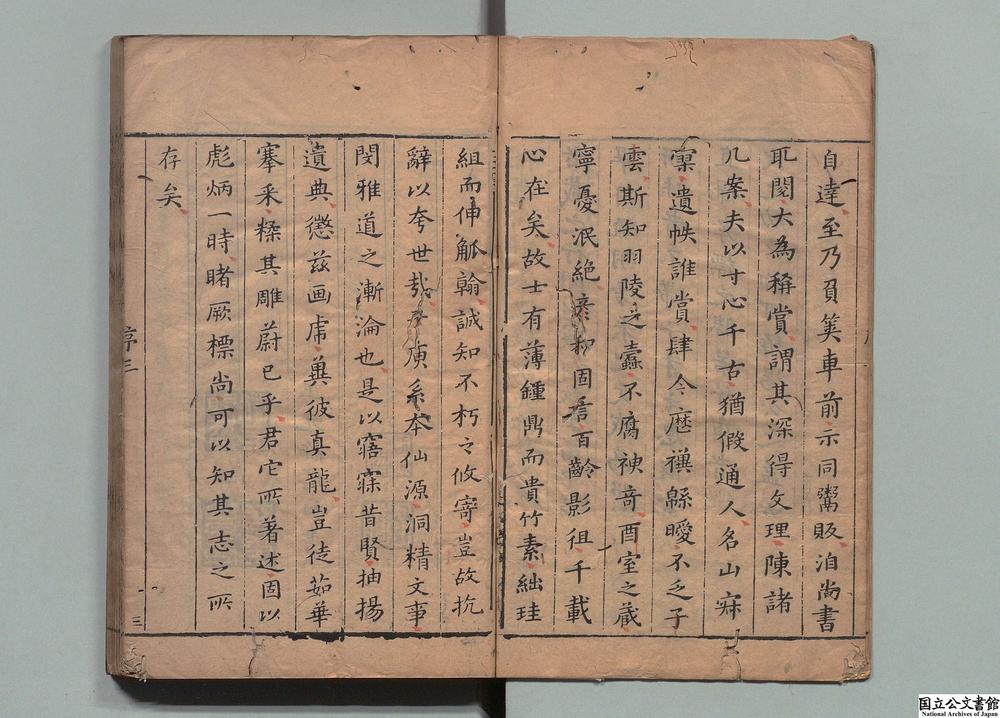 自達至乃負篋車前示同鬻販洎尚書
耴閱大為稱賞謂其深得文理陳諸
几案夫以寸心千古猶假通人名山寂
寞遺帙誰賞肆今歷禩緜曖不乏子
雲斯知羽陵之蠹不腐神奇酉室之藏
寧憂泯絕彥和固言百齡影徂千載
心在矣故士有薄鍾鼎而貴竹素絀珪
組而伸觚翰誠知不朽之攸寄豈故抗
辭以夸世哉 庚系本仙源洞精文事
閔雅道之漸淪也是以寤寐昔賢抽揚
遺典懲茲画虎冀彼真龍豈徒茹華
搴采糅其雕蔚已乎君它所著述固以
彪炳一時睹厥標尚可以知其志之所
存矣
序三
三
国立公文書館
National Archives of Japan